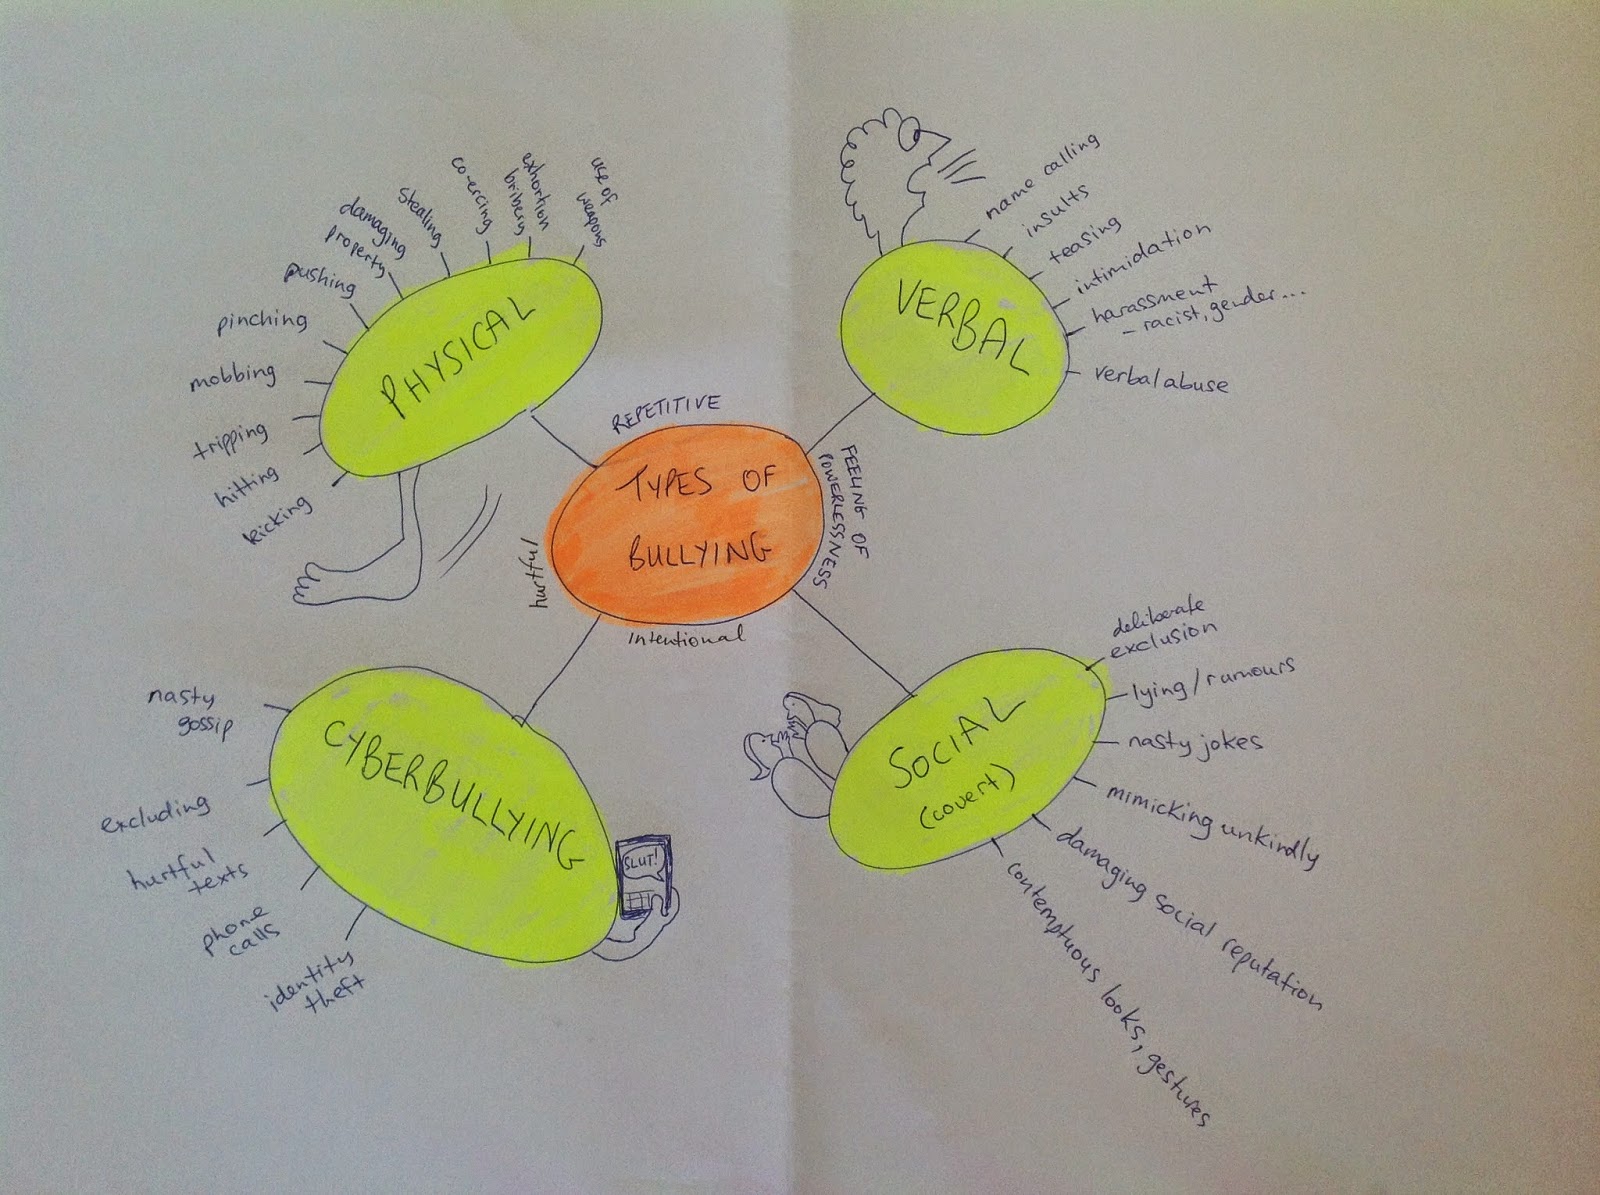 TYPES OF
BULLYING
REPETITIVE
FEELING OF
POWERLESSNESS
intentional
hurtful
PHYSICAL
use of
weapons
exhortion
bribery
co-ercing
stealing
damaging
property
pushing
pinching
mobbing
tripping
hitting
kicking
VERBAL
name calling
insults
teasing
intimidation
harassment
- racist, gender...
verbal abuse
CYBERBULLYING
nasty
gossip
excluding
hurtful
texts
phone
calls
identity
theft
SLUT!
SOCIAL
(covert)
deliberate
exclusion
lying/rumours
nasty jokes
mimicking unkindly
damaging social reputation
contemptuous looks, gestures